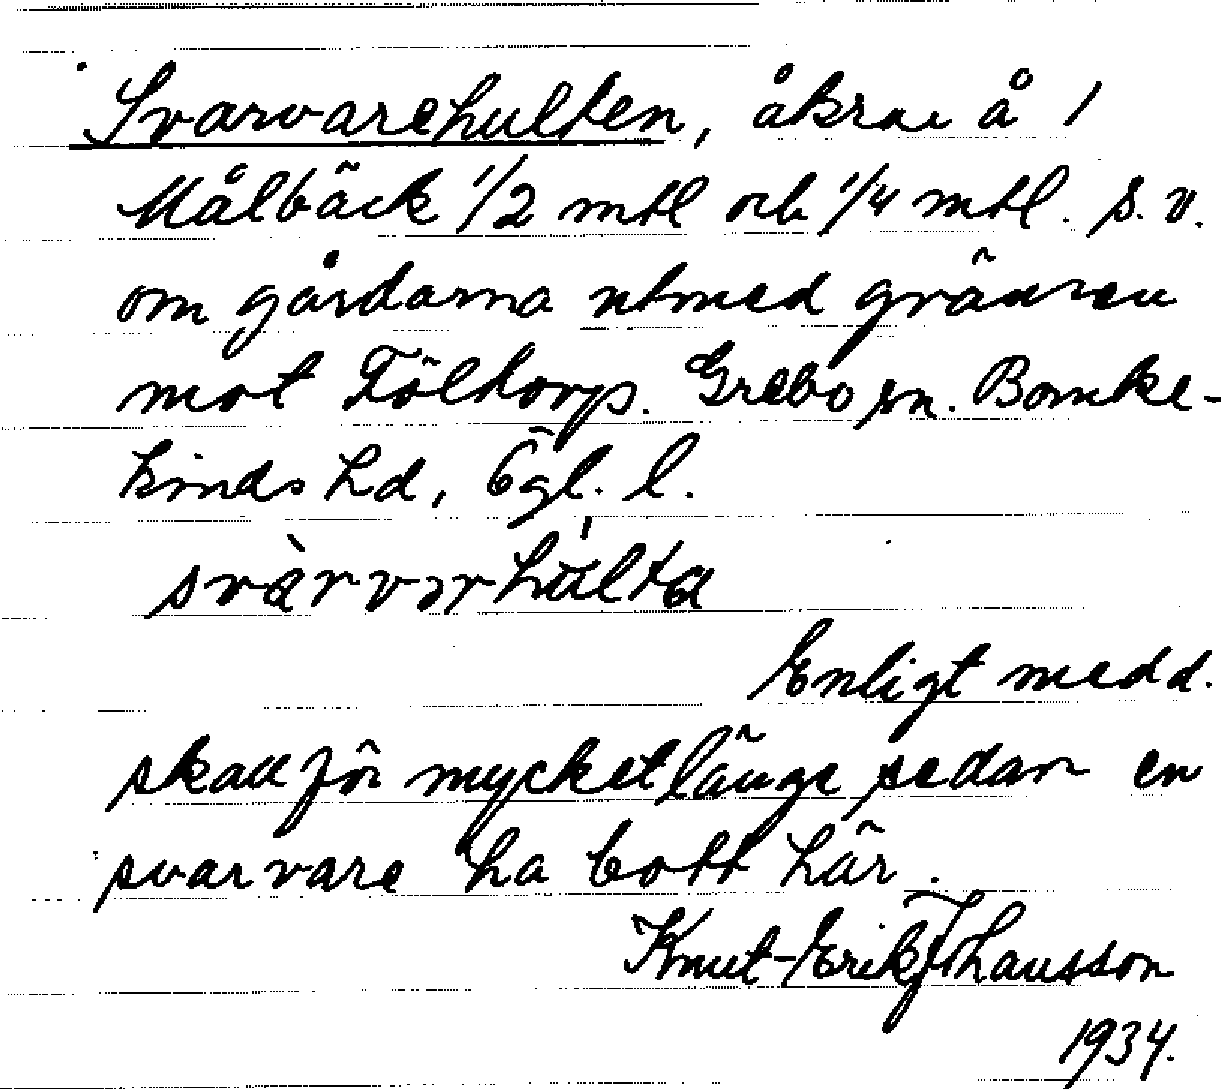 Svarvarehulten, åkrar å 1
Målbäck 1/2 mtl och 1/4 mtl. s.v.
om gårdarna utmed gränsen
mot Föltorp. Grebo sn. Banke-
kinds hd, Ögl. l.
svàrvarhúlta
Enligt medd.
skall för mycket länge sedan en
svarvare ha bott här.
Knut-Erik Johansson
1934.